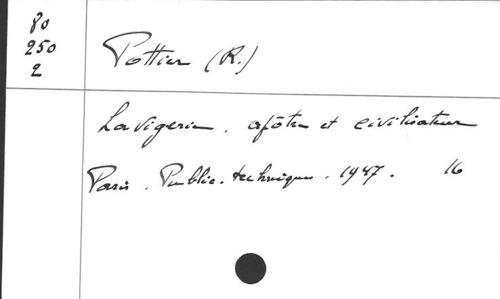 80
250
2
Pottier (R.)
Lavigerie. apôtre et civilisateur
Paris. Public. techniques. 1947. 16